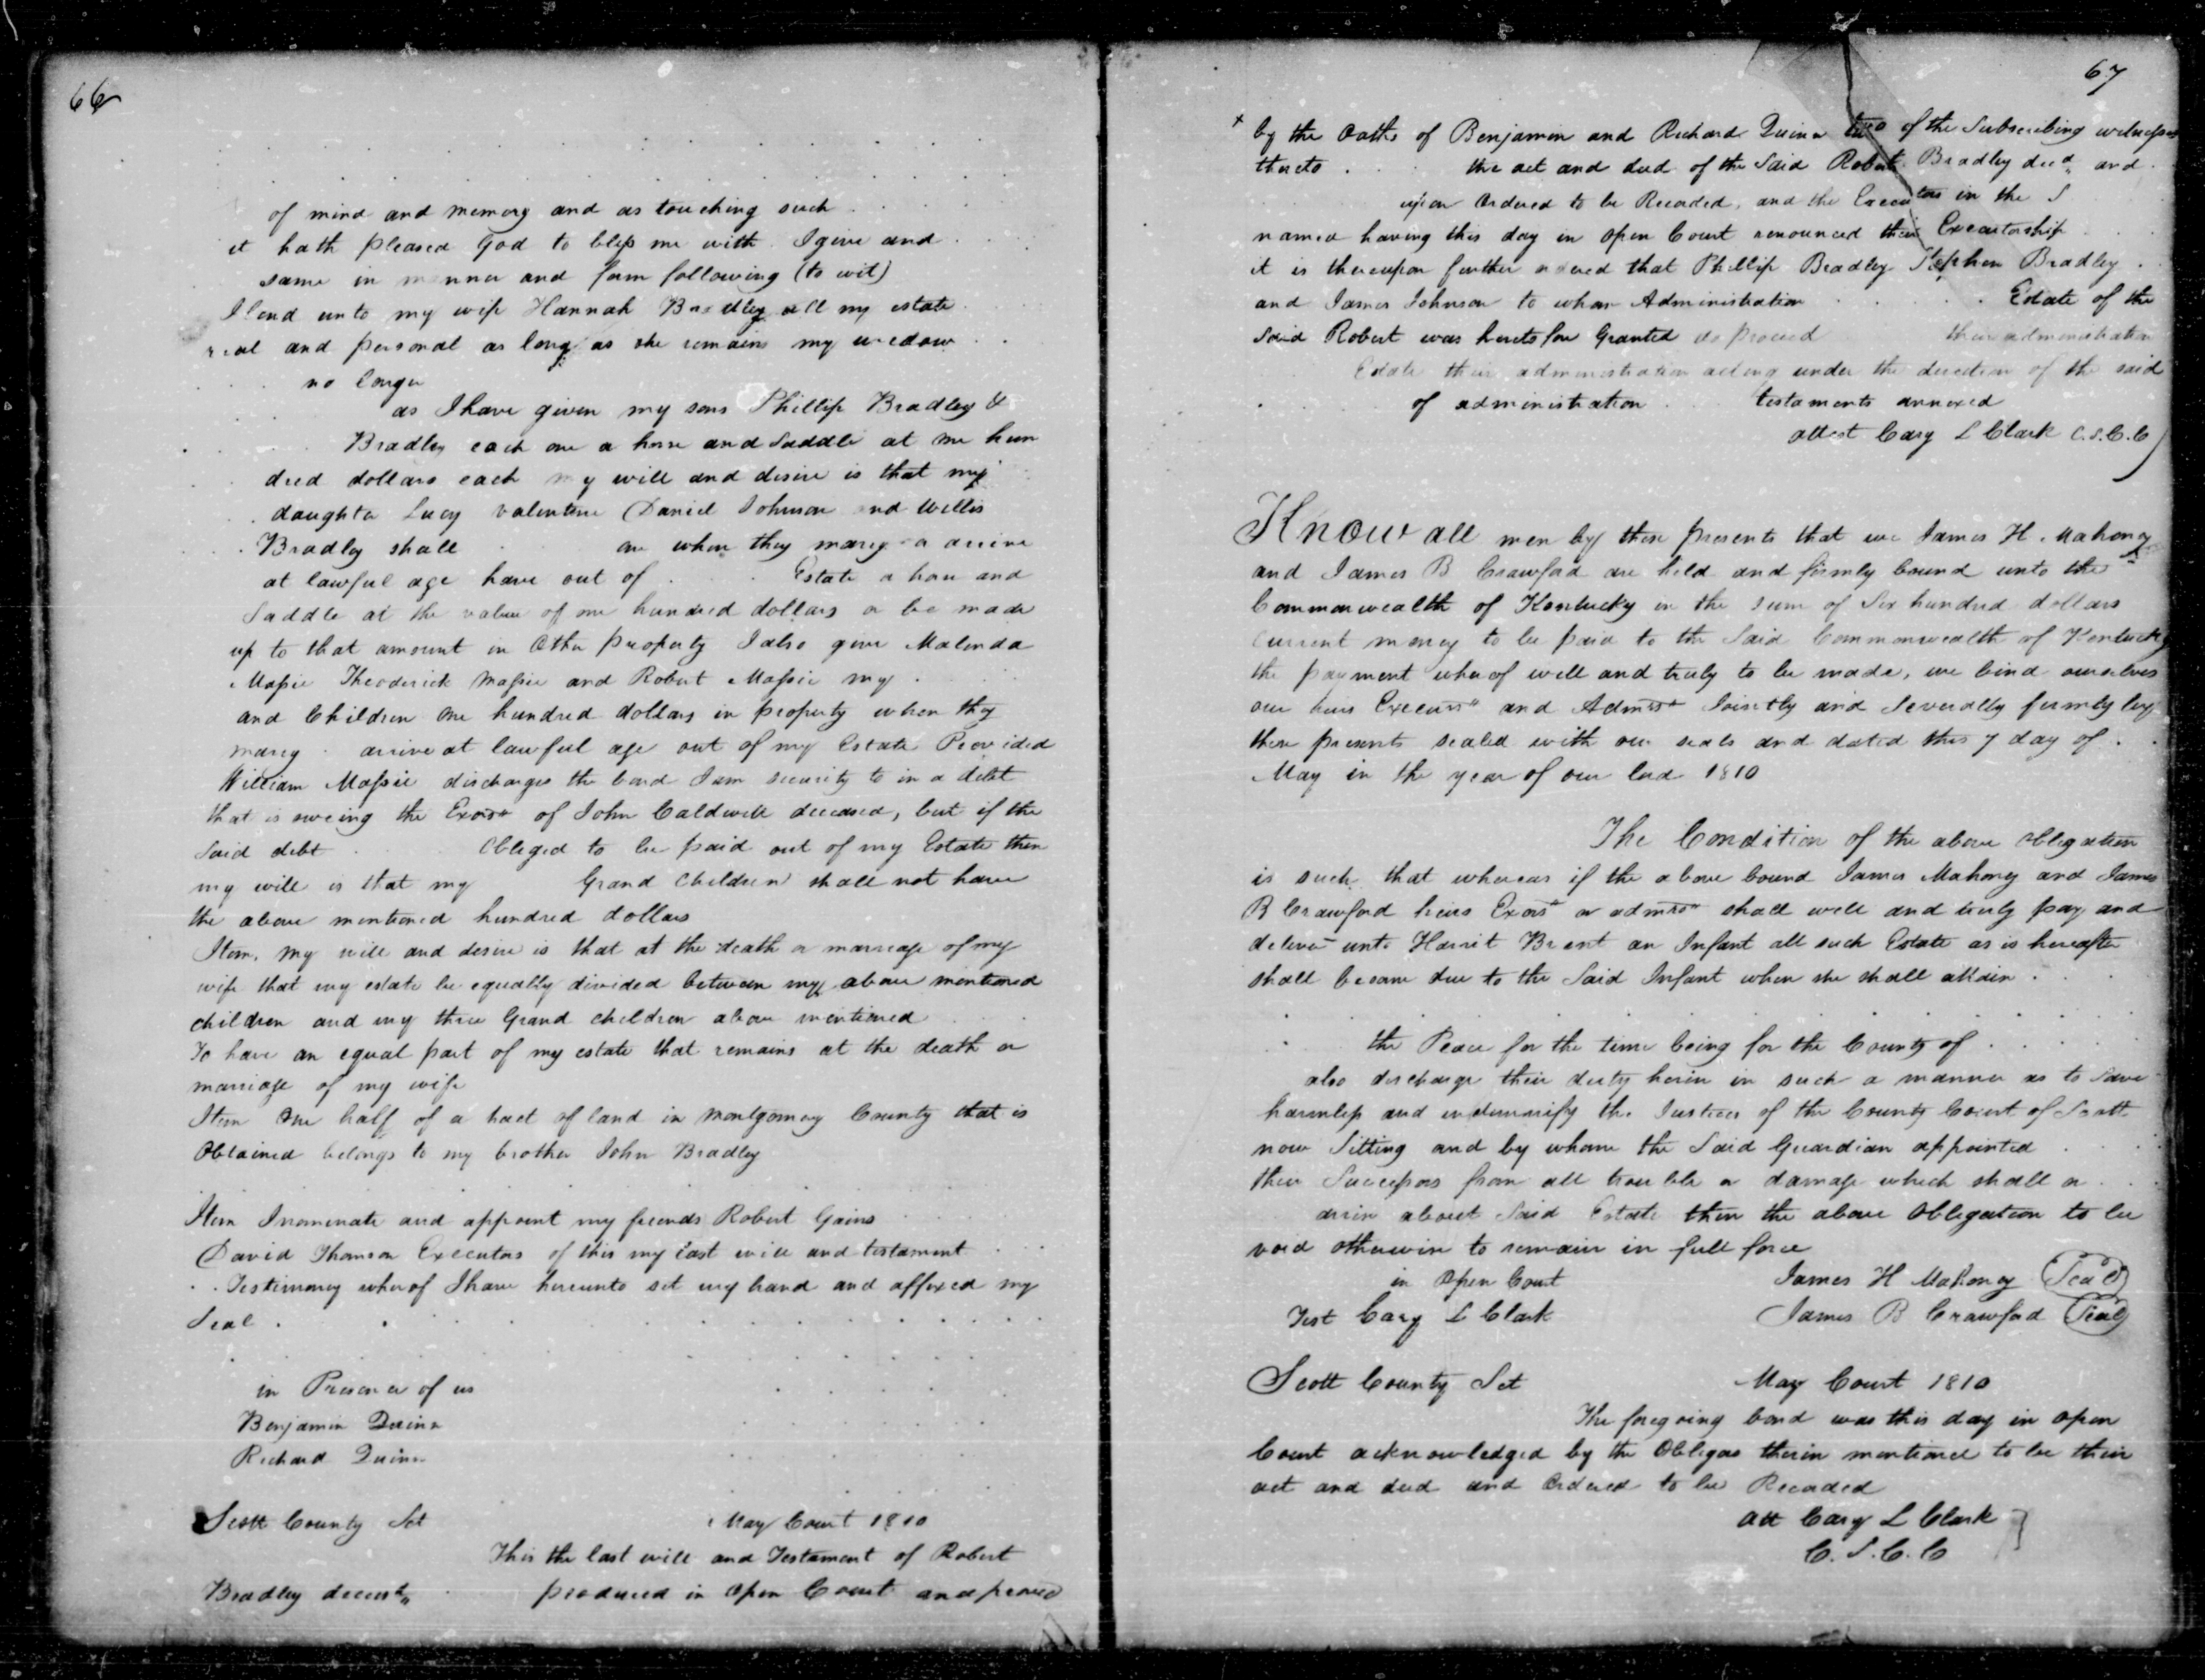 66
of mind and memory and as touching such
it hath pleased God to bless me with I give and
same in manner and form following (to wit)
I lend unto my wife Hannah Bradley all my estate
real and personal as long as she remains my widow
no longer
as I have given my sons Phillip Bradley &
Bradley each one a horse and Saddle at one hun
dred dollars each my will and desire is that my
daughter Lucy Valentine Daniel Johnson and Willis
Bradley shall when they marry or arrive
at lawful age have out of Estate a horse and
Saddle at the value of one hundred dollars or be made
up to that amount in Other property I also give Malinda
Massie Theoderick Massie and Robert Massie my
and Children One hundred dollars in property when they
marry arrive at lawful age out of my Estate Provided
William Massie discharges the bond I am security to in a debt
that is oweing the Exors of John Caldwell deceased, but if the
Said debt Obliged to be paid out of my Estate then
my will is that my Grand Children shall not have
the above mentioned hundred dollars
Item, my will and desire is that at the death or marriage of my
wife that my estate be equally divided between my above mentioned
children and my three Grand children above mentioned
To have an equal part of my estate that remains at the death or
marriage of my wife
Item One half of a tract of land in Montgomery County that is
Obtained belongs to my brother John Bradley
Item I nominate and appoint my friends Robert Gains
David Thomson Executors of this my last will and testament
Testimony wherof I have hereunto set my hand and affixed my
Seal
in Presence of us
Benjamin Quinn
Richard Quinn
Scott County Sct May Court 1810
This the last will and Testament of Robert
Bradley produced in Open Court and proved
67
by the Oaths of Benjamin and Richard Quinn two of the Subscribing witnesses
thereto the act and deed of the Said Robert Bradley decd and
upon Ordered to be Recorded, and the Executors in the S
named having this day in Open Court renounced their Executorship
it is thereupon further ordered that Phillip Bradley Stephen Bradley
and James Johnson to whom Administration Estate of the
Said Robert was heretofore Granted do proceed their administration
Estate their administration acting under the direction of the said
of administration testaments annexed
attest Cary L Clark C.S.C.C
Know all men by these presents that we James H. Mahoney
and James B Crawford are held and firmly bound unto the
Commonwealth of Kentucky in the sum of Six hundred dollars
current money to be paid to the Said Commonwealth of Kentucky
the payment wherof well and truly to be made, we bind ourselves
our heirs and Jointly and Severally firmly by
these presents sealed with our seals and dated this 7 day of
May in the year of our Lord 1810
The Condition of the above Obligation
is such that whereas if the above bound James Mahony and James
B Crawford heirs Exors or admrs shall well and truly pay and
deliver unto Harrit Brent an Infant all such Estate as is hereafter
shall become due to the Said Infant when she shall attain
the Peace for the time being for the County of
also discharge their duty herin in such a manner as to Save
harmless and indemnify the Justices of the County Court of Scott
now Sitting and by whom the Said Guardian appointed
their Successors from all trouble or damage which shall or
arise about Said Estate then the above Obligation to be
void otherwise to remain in full force
in Open Court James H Mahoney Seal
Test Cary L Clark James B Crawford Seal
Scott County Sct May Court 1810
The foregoing bond was this day in open
Court acknowledged by the Obligors therin mentioned to be their
act and deed and Ordered to be Recorded
Att Cary L Clark
C.S.C.C